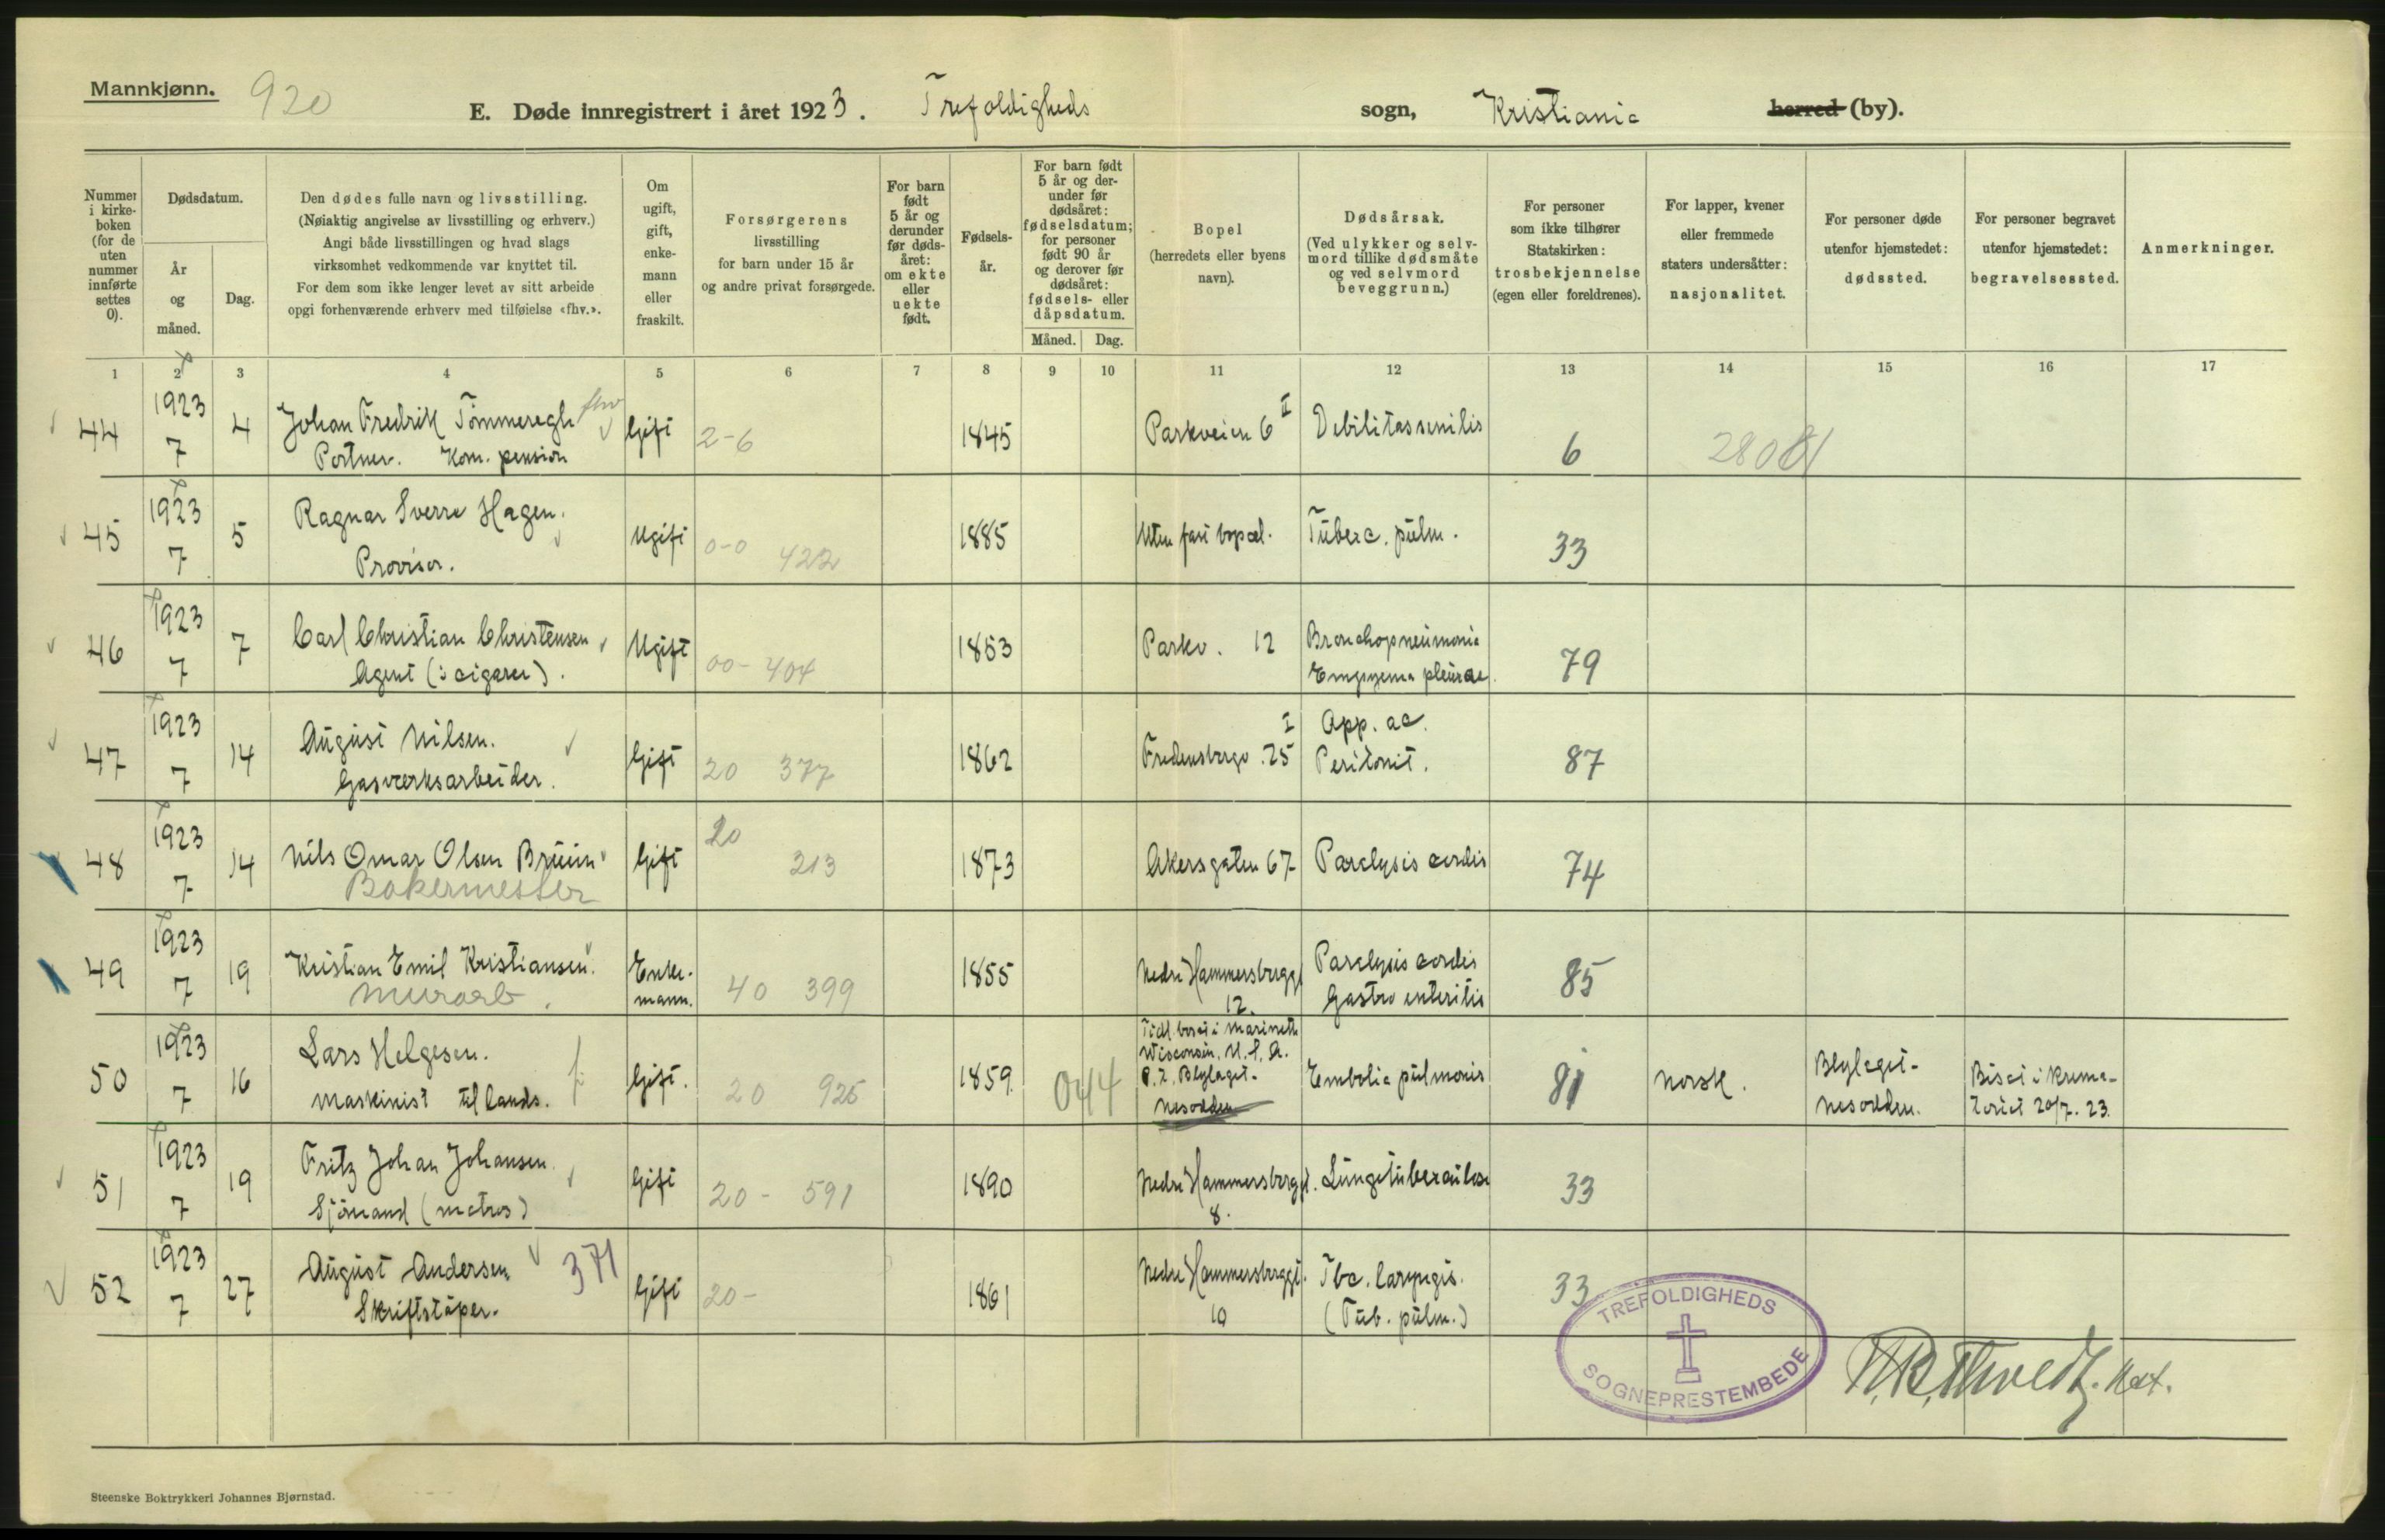 Mannkjønn. 920
E. Døde innregistrert i året 1923. Trefoldigheds sogn, Kristiania herred (by).
Nummer i kirke-boken (for de uten nummer innførte settes 0).
Dødsdatum.
År og måned.
Dag.
Den dødes fulle navn og livsstilling.
(Nøiaktig angivelse av livsstilling og erhverv.)
Angi både livsstillingen og hvad slags
virksomhet vedkommende var knyttet til.
For dem som ikke lenger levet av sitt arbeide
opgi forhenværende erhverv med tilføielse «fhv.».
Om ugift, gift, enke-mann eller fraskilt.
Forsørgerens
livsstilling
for barn under 15 år
og andre privat forsørgede.
For barn født 5 år og derunder før døds-året: om ekte eller uekte født.
Fødsels-år.
For barn født 5 år og der-under før dødsåret: fødselsdatum; for personer født 90 år og derover før dødsåret: fødsels- eller dåpsdatum.
Måned. Dag.
Bopel
(herredets eller byens
navn).
Dødsårsak.
(Ved ulykker og selv-
mord tillike dødsmåte
og ved selvmord
beveggrunn.)
For personer
som ikke tilhører
Statskirken:
trosbekjennelse
(egen eller foreldrenes).
For lapper, kvener
eller fremmede
staters undersåtter:
nasjonalitet.
For personer døde
utenfor hjemstedet:
dødssted.
For personer begravet
utenfor hjemstedet:
begravelsessted.
Anmerkninger.
1 2 3 4 5 6 7 8 9 10 11 12 13 14 15 16 17
44 1923 7 4 Johan Fredrik Tømmeregh fhv
Portner. Kom. pension Gift 2-6 1845 Parkveien 6 I Debilitas senilis 6 28081
45 1923 7 5 Ragnar Sverre Hagen.
Provisor. Ugift 0-0 422 1885 Uten fast bopæl. Tuberc. pulm. 33
46 1923 7 7 Carl Christian Christensen
Agent (i cigarer). Ugift 00- 404 1853 Parkv. 12 Bronchopneumonia
Empyema pleurae. 79
47 1923 7 14 August Nilsen.
Gasværksarbeider. Gift 20 377 1862 Fredensborgv. 25 I App. ac.
Peritonit. 87
48 1923 7 14 Nils Omar Olsen Bruun
Bakermester Gift 20 213 1873 Akersgaten 67 Paralysis cordis 74
49 1923 7 19 Kristian Emil Kristiansen.
Murarb. Enke-
mann. 40 399 1855 Nedre Hammersbergg
12. Paralysis cordis
Gastro enteritis 85
50 1923 7 16 Lars Helgesen.
Maskinist til lands. Gift. 20 925 1859 044 Tidl. bosat i Marinette
Wisconsin, U.S.A.
P.t. Blylaget-
Nesodden Embolia pulmonis 81 Norsk. Blylaget-
Nesodden. Bisat i Krema-
toriet 20/7. 23.
51 1923 7 19 Fritz Johan Johansen.
Sjømand (matros) Gift 20- 591 1890 Nedre Hammersbergg.
8. Lungetuberculose 33
52 1923 7 27 August Andersen 371
Skriftstøper. Gift 20- 1861 Nedre Hammersberggt.
10 Tbc. laryngis.
(Tub. pulm.) 33
TREFOLDIGHEDS
SOGNEPRESTEMBEDE
Steenske Boktrykkeri Johannes Bjørnstad.